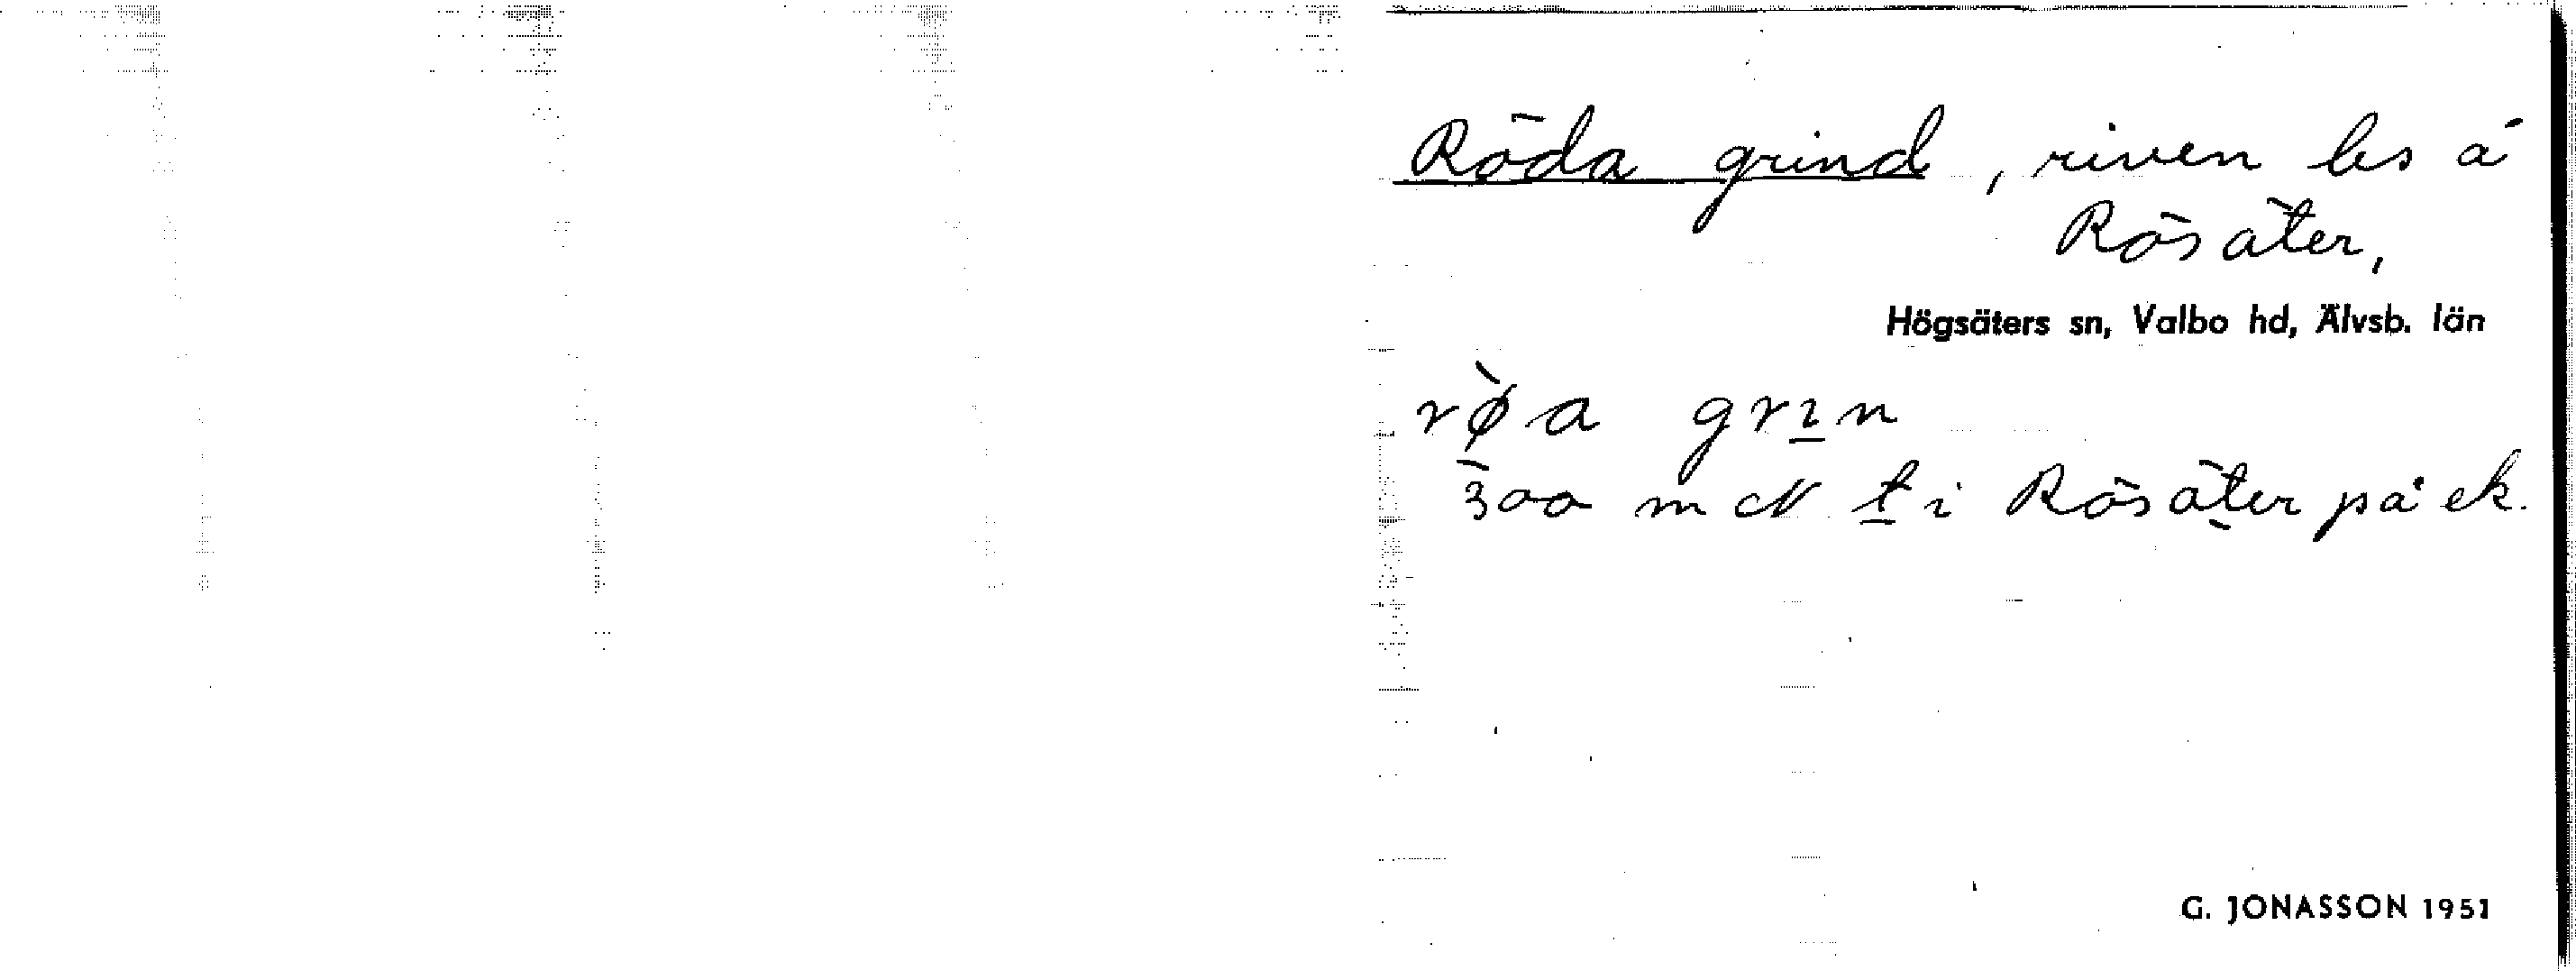 Röda grind, riven les å
Rösäter,
Högsäters sn, Valbo hd, Älvsb. län
rø̀a grın
300 m N t i Rösäter på ek.
G. JONASSON 1951